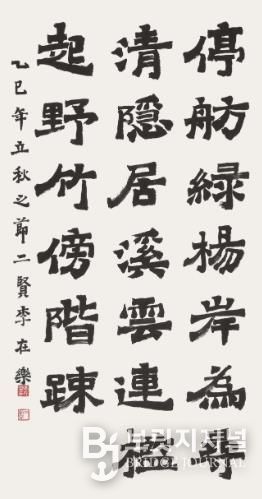 停舫綠楊岸為尋
清隱居溪雲連檻
起野竹傍階踈
乙巳年立秋之節二賢李在樂
BJ 브릿지저널
BRIDGE JOURNAL